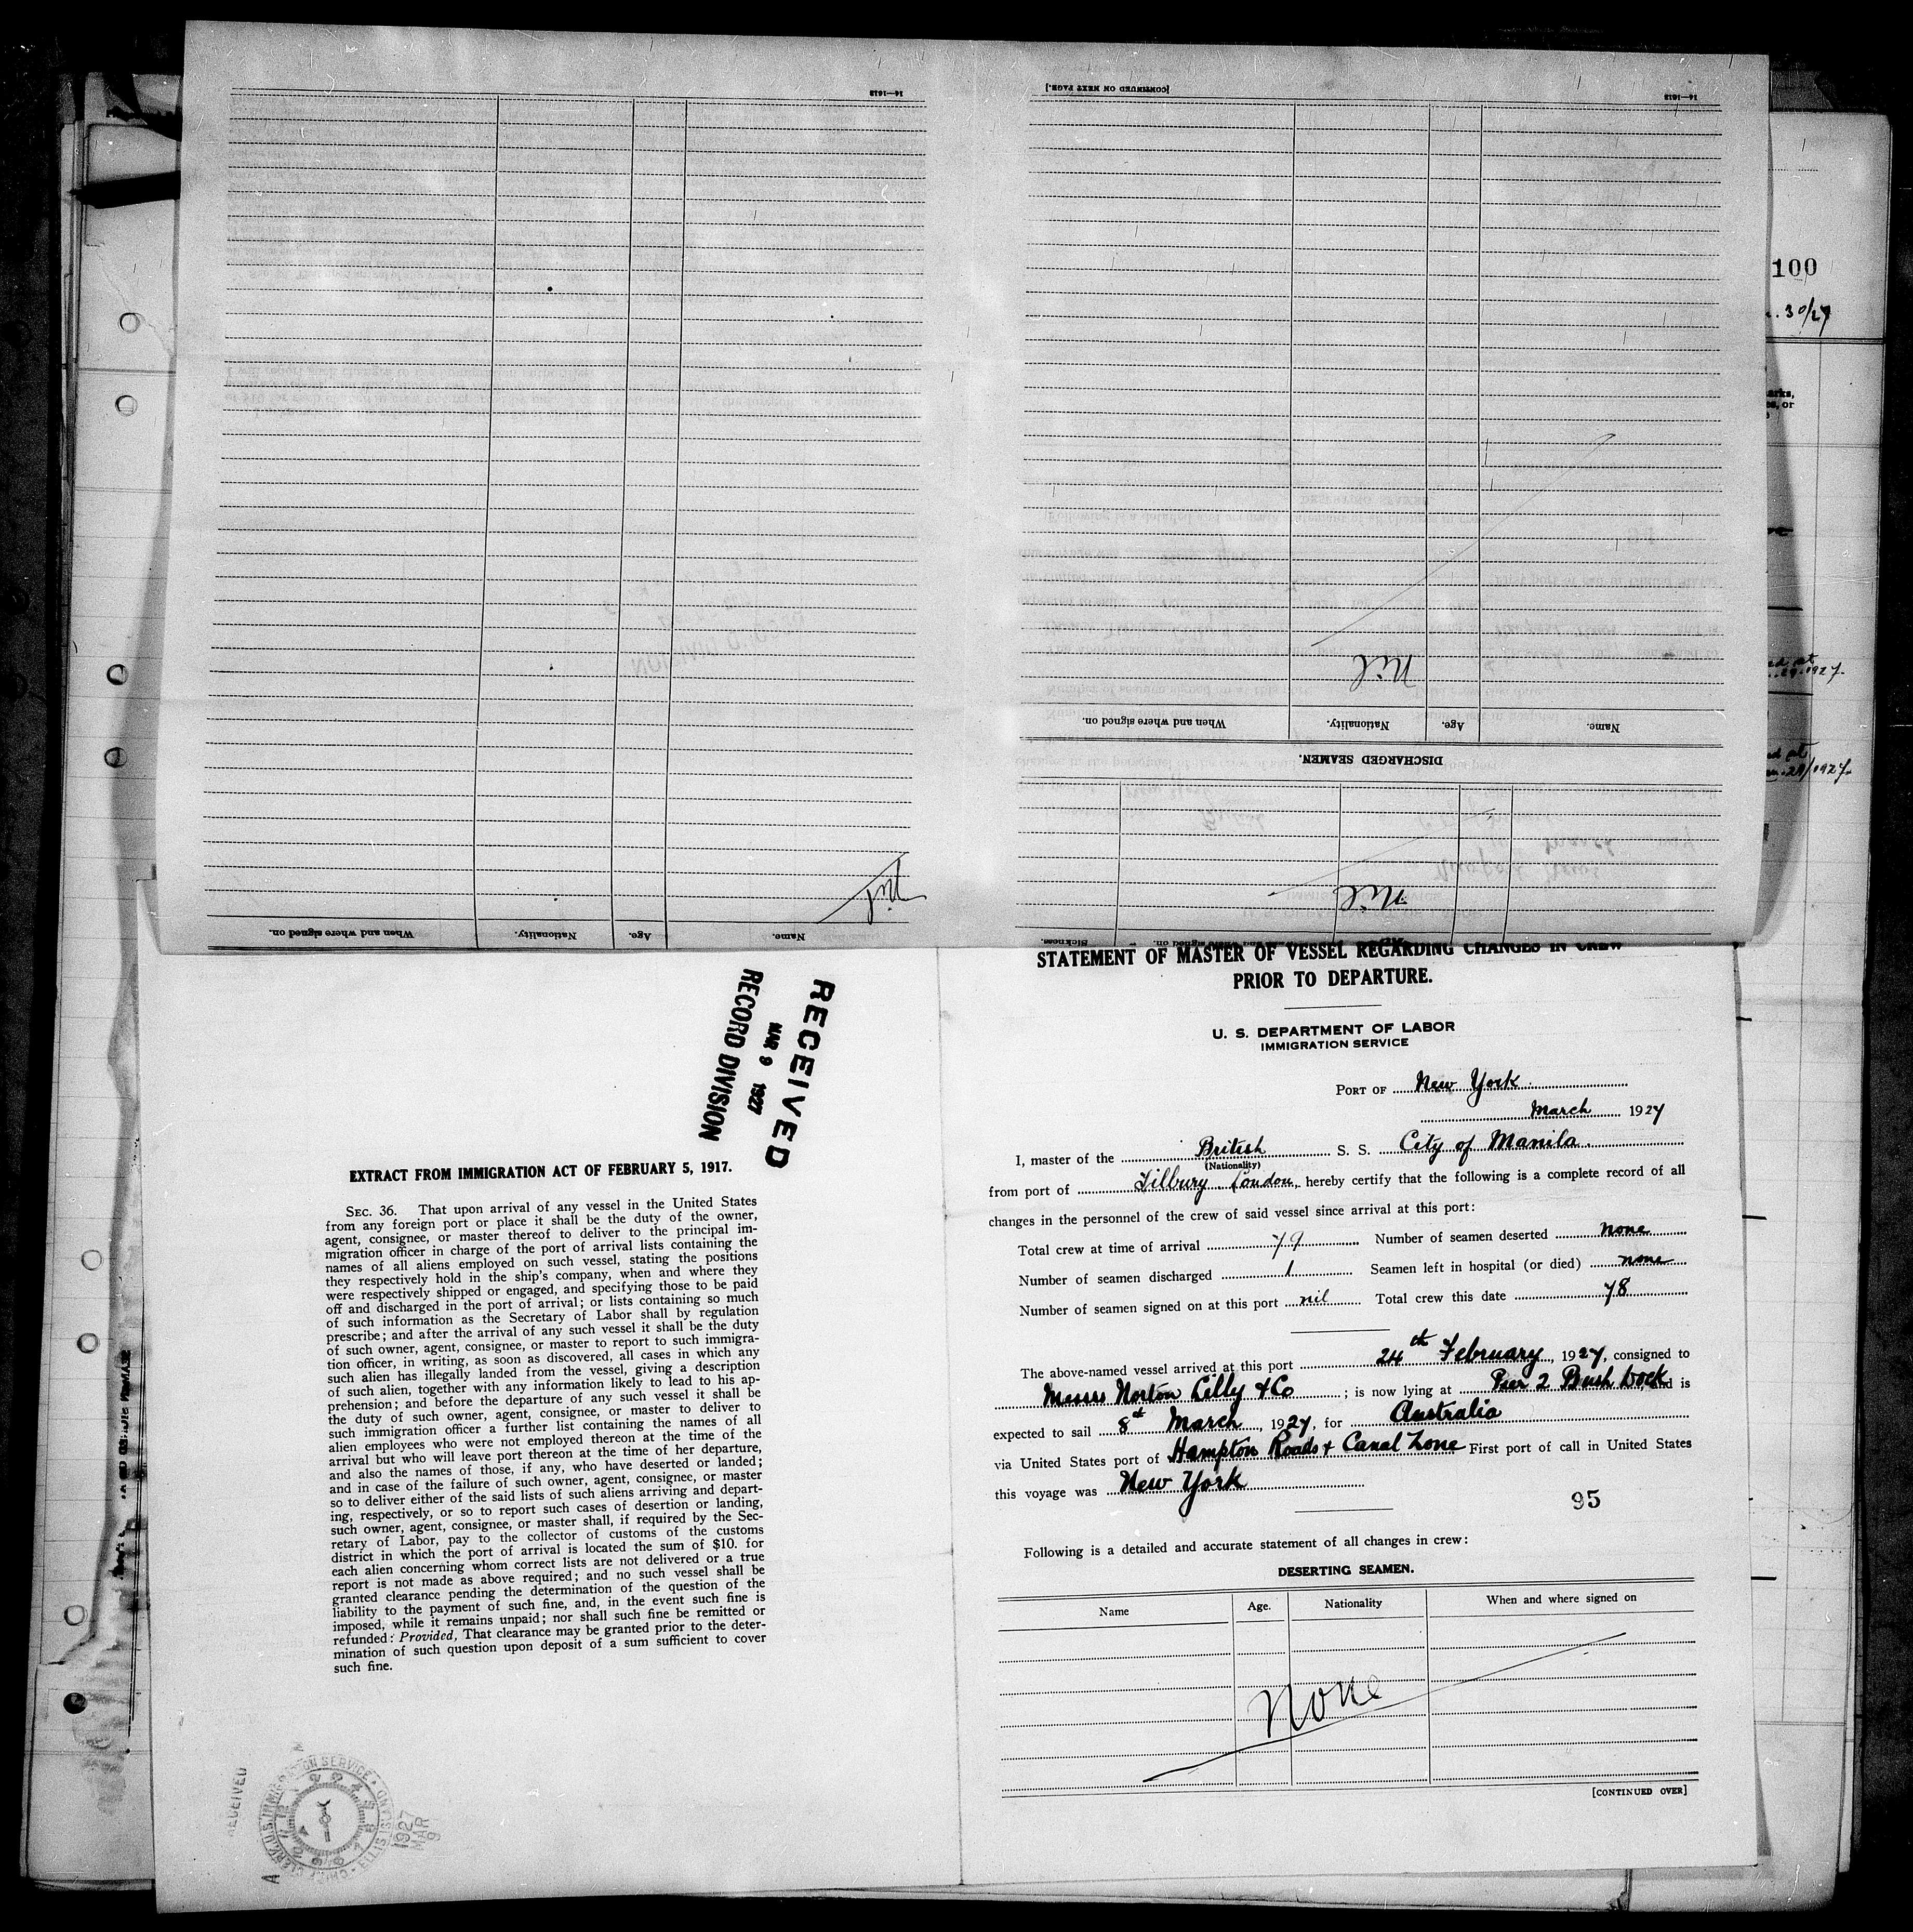 14—1618
[CONTINUED ON NEXT PAGE.]
14—1618
Nil
Name.
Age.
Nationality.
When and where signed on.
Name.
Age.
Nationality.
When and where signed on.
Nil
DISCHARGED SEAMEN.
Nil
signed on.
Sickness.
100
30/27
arks,
es, or
ed at
29.1927.
ed at
29/1927.
STATEMENT OF MASTER OF VESSEL REGARDING CHANGES IN CREW
PRIOR TO DEPARTURE.
U. S. DEPARTMENT OF LABOR
IMMIGRATION SERVICE
PORT OF New York
March 1927
I, master of the British S. S. City of Manila
(Nationality)
from port of Tilbury London, hereby certify that the following is a complete record of all
changes in the personnel of the crew of said vessel since arrival at this port:
Total crew at time of arrival 79 Number of seamen deserted none
Number of seamen discharged 1 Seamen left in hospital (or died) none
Number of seamen signed on at this port nil Total crew this date 78
The above-named vessel arrived at this port 24th February, 1927, consigned to
Messrs Norton Lilly & Co; is now lying at Pier 2 Bush Dock and is
expected to sail 8th March, 1927, for Australia
via United States port of Hampton Roads & Canal Zone First port of call in United States
this voyage was New York
95
Following is a detailed and accurate statement of all changes in crew:
DESERTING SEAMEN.
Name
Age.
Nationality
When and where signed on
None
[CONTINUED OVER]
RECEIVED
MAR 9 1927
RECORD DIVISION
EXTRACT FROM IMMIGRATION ACT OF FEBRUARY 5, 1917.
SEC. 36. That upon arrival of any vessel in the United States
from any foreign port or place it shall be the duty of the owner,
agent, consignee, or master thereof to deliver to the principal im-
migration officer in charge of the port of arrival lists containing the
names of all aliens employed on such vessel, stating the positions
they respectively hold in the ship's company, when and where they
were respectively shipped or engaged, and specifying those to be paid
off and discharged in the port of arrival; or lists containing so much
of such information as the Secretary of Labor shall by regulation
prescribe; and after the arrival of any such vessel it shall be the duty
of such owner, agent, consignee, or master to report to such immigra-
tion officer, in writing, as soon as discovered, all cases in which any
such alien has illegally landed from the vessel, giving a description
of such alien, together with any information likely to lead to his ap-
prehension; and before the departure of any such vessel it shall be
the duty of such owner, agent, consignee, or master to deliver to
such immigration officer a further list containing the names of all
alien employees who were not employed thereon at the time of the
arrival but who will leave port thereon at the time of her departure,
and also the names of those, if any, who have deserted or landed;
and in case of the failure of such owner, agent, consignee, or master
so to deliver either of the said lists of such aliens arriving and depart-
ing, respectively, or so to report such cases of desertion or landing,
such owner, agent, consignee, or master shall, if required by the Sec-
retary of Labor, pay to the collector of customs of the customs
district in which the port of arrival is located the sum of $10. for
each alien concerning whom correct lists are not delivered or a true
report is not made as above required; and no such vessel shall be
granted clearance pending the determination of the question of the
liability to the payment of such fine, and, in the event such fine is
imposed, while it remains unpaid; nor shall such fine be remitted or
refunded: Provided, That clearance may be granted prior to the deter-
mination of such question upon deposit of a sum sufficient to cover
such fine.
RECEIVED
CHIEF CLERK, U.S. IMMIGRATION SERVICE ELLIS ISLAND
1927
MAR
9
A